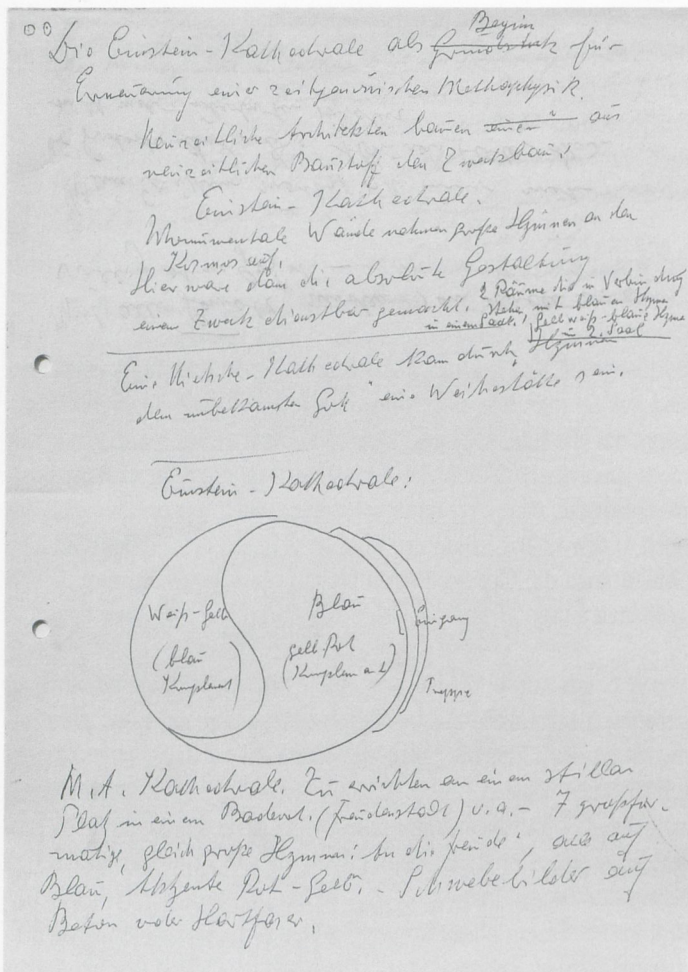 Beginn
Die Einstein-Kathedrale als Grundstock für
Erneuerung einer zeitgenössischen Methaphysik.
Neuzeitliche Architekten bauen einen aus
neuzeitlichen Baustoff den Zweckbau:
Einstein-Kathedrale.
Monumentale Wände nehmen große Hymnen an den
Kosmos auf.
Hier wäre dann die absolute Gestaltung
einem Zweck dienstbar gemacht. 2 Räume die in Verbindung
stehen, mit blauen Hymnen
in einem Saal, gelb weiß-blaue Hymnen
in 2. Saal
Eine Nietsche-Kathedrale kann durch "Hymnen
dem unbekannten Gott" eine Weihestätte sein.
Einstein-Kathedrale:
Weiß-Gelb
(blau
Komplement)
Blau
gelb Rot
(Komplement)
Eingang
Treppe
M.A. Kathedrale. Zu errichten an einem stillen
Platz in einem Badeort. (Freudenstadt) u.a. - 7 großfor-
matige, gleich große Hymnen: "An die Freude", alle auf
Blau, Akzente Rot-Gelb. - Schwebebilder auf
Beton oder Hartfaser.